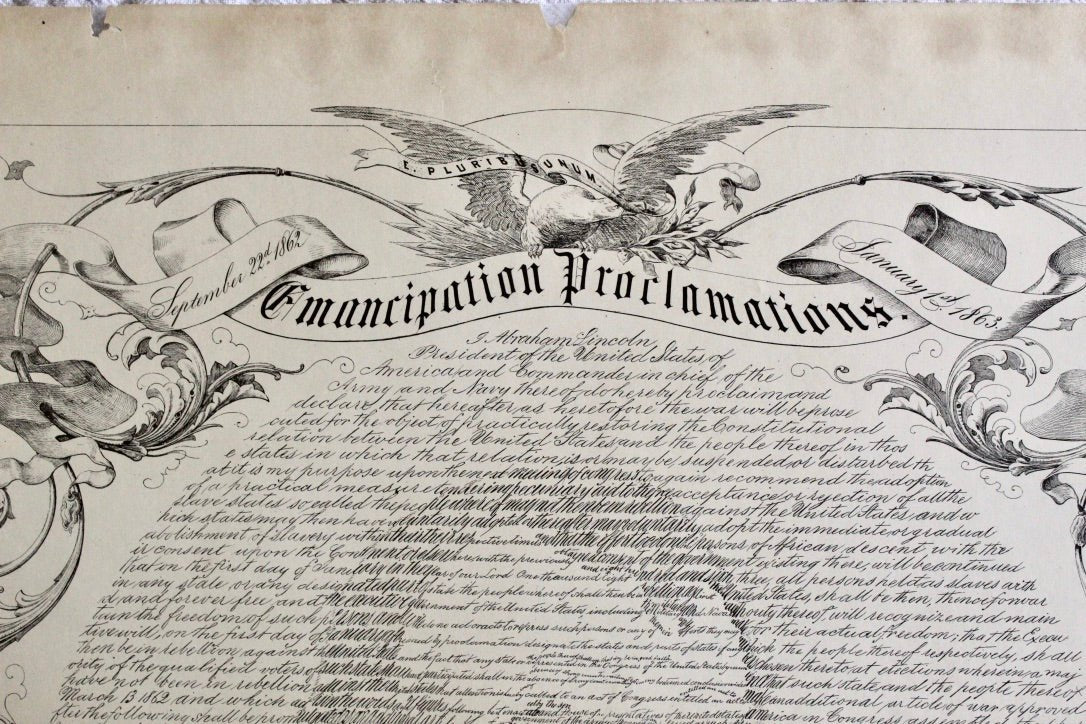 E. PLURIBUS UNUM
September 22d. 1862
January 1st. 1863.
Emancipation Proclamations.
I, Abraham Lincoln,
President of the United States, of
America and Commander in chief of the
Army and Navy thereof, do hereby proclaim and
declare, that hereafter as heretofore the war will be prose
cuted for the object of practically restoring the Constitutional
relation between the United States and the people thereof in thos
e states in which that relation is or may be suspended or disturbed th
at it is my purpose upon the next meeting of congress to again recommend the adoption
of a practical measure tendering pecuniary aid to the acceptance or rejection of all the
slave states so called the people whereof may not then be in rebellion against the United States, and w
hich states may then have voluntarily adopted or thereafter may voluntarily adopt the immediate or gradual
abolishment of slavery within their respective limits and that the effort to colonize persons of African descent, with the
ir consent upon the Continent or elsewhere with the previously obtained consent of the government existing there, will be continued
that on the first day of January in the year of our Lord One thousand eight hundred and sixty three, all persons held as slaves with
in any state, or any designated part of a state the people whereof shall then be in rebellion against the United States, shall be then, thenceforwar
d, and forever free, and the executive government of the United States, including the military and naval authority thereof, will recognize and main
tain the freedom of such persons and will do no act or acts to repress such persons or any of them in any efforts they may make for their actual freedom; that the Execu
tive will, on the first day of January aforesaid by proclamation designate the states and parts of states if any in which the people thereof respectively, shall
then be in rebellion against the United States and the fact that any State or represented in the Congress of the United States chosen thereto at elections wherein a maj
ority of the qualified voters of such state shall have participated shall in the absence of such state and the people thereof
have not been in rebellion against the United States that attention is hereby called to an act of Congress entitled an act to make an additional article of war approved
March 13 1862, and which act
after the following Shall be America in Congress